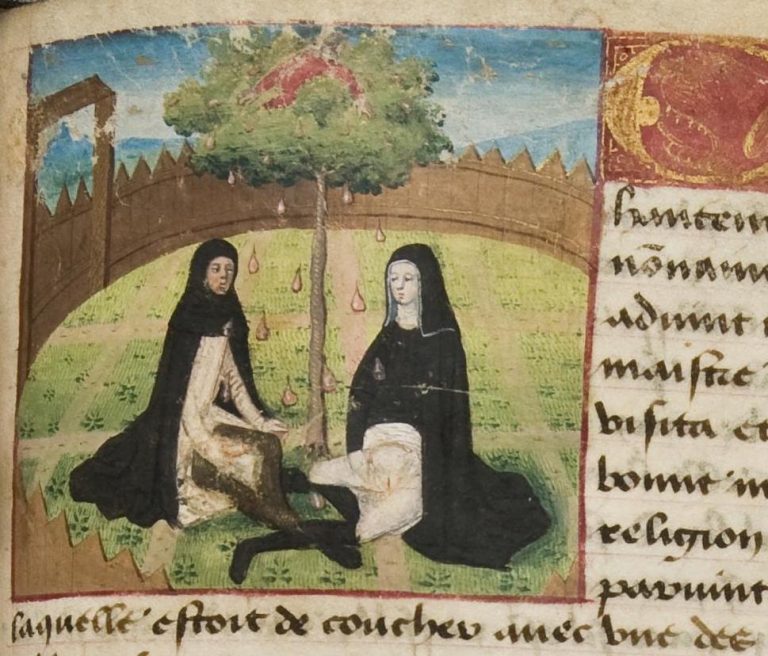 hautem
nōname
aduint
maistre
visita et
bonne m
religion
paruint
laquelle estoit de coucher auec vne des